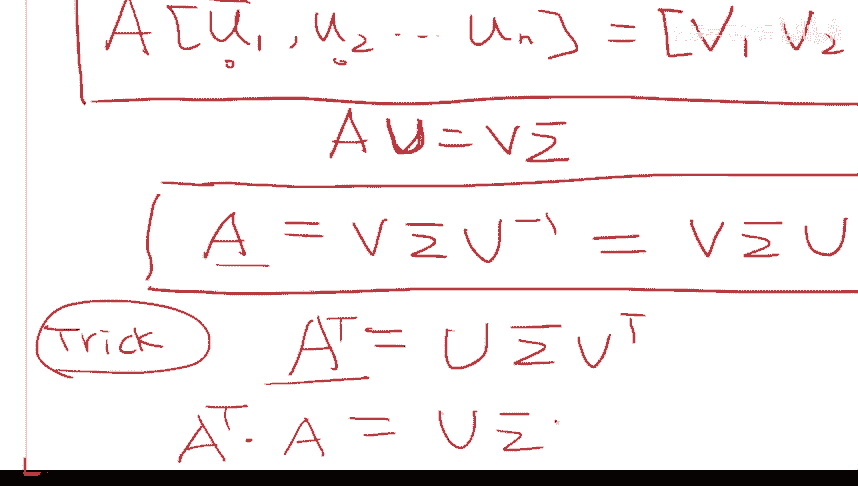 A [u̅₁, u₂ ... uₙ] = [V₁ V₂
A U = V Σ
A = V Σ U⁻¹ = V Σ U
Trick Aᵀ = U Σ Vᵀ
Aᵀ · A = U Σ